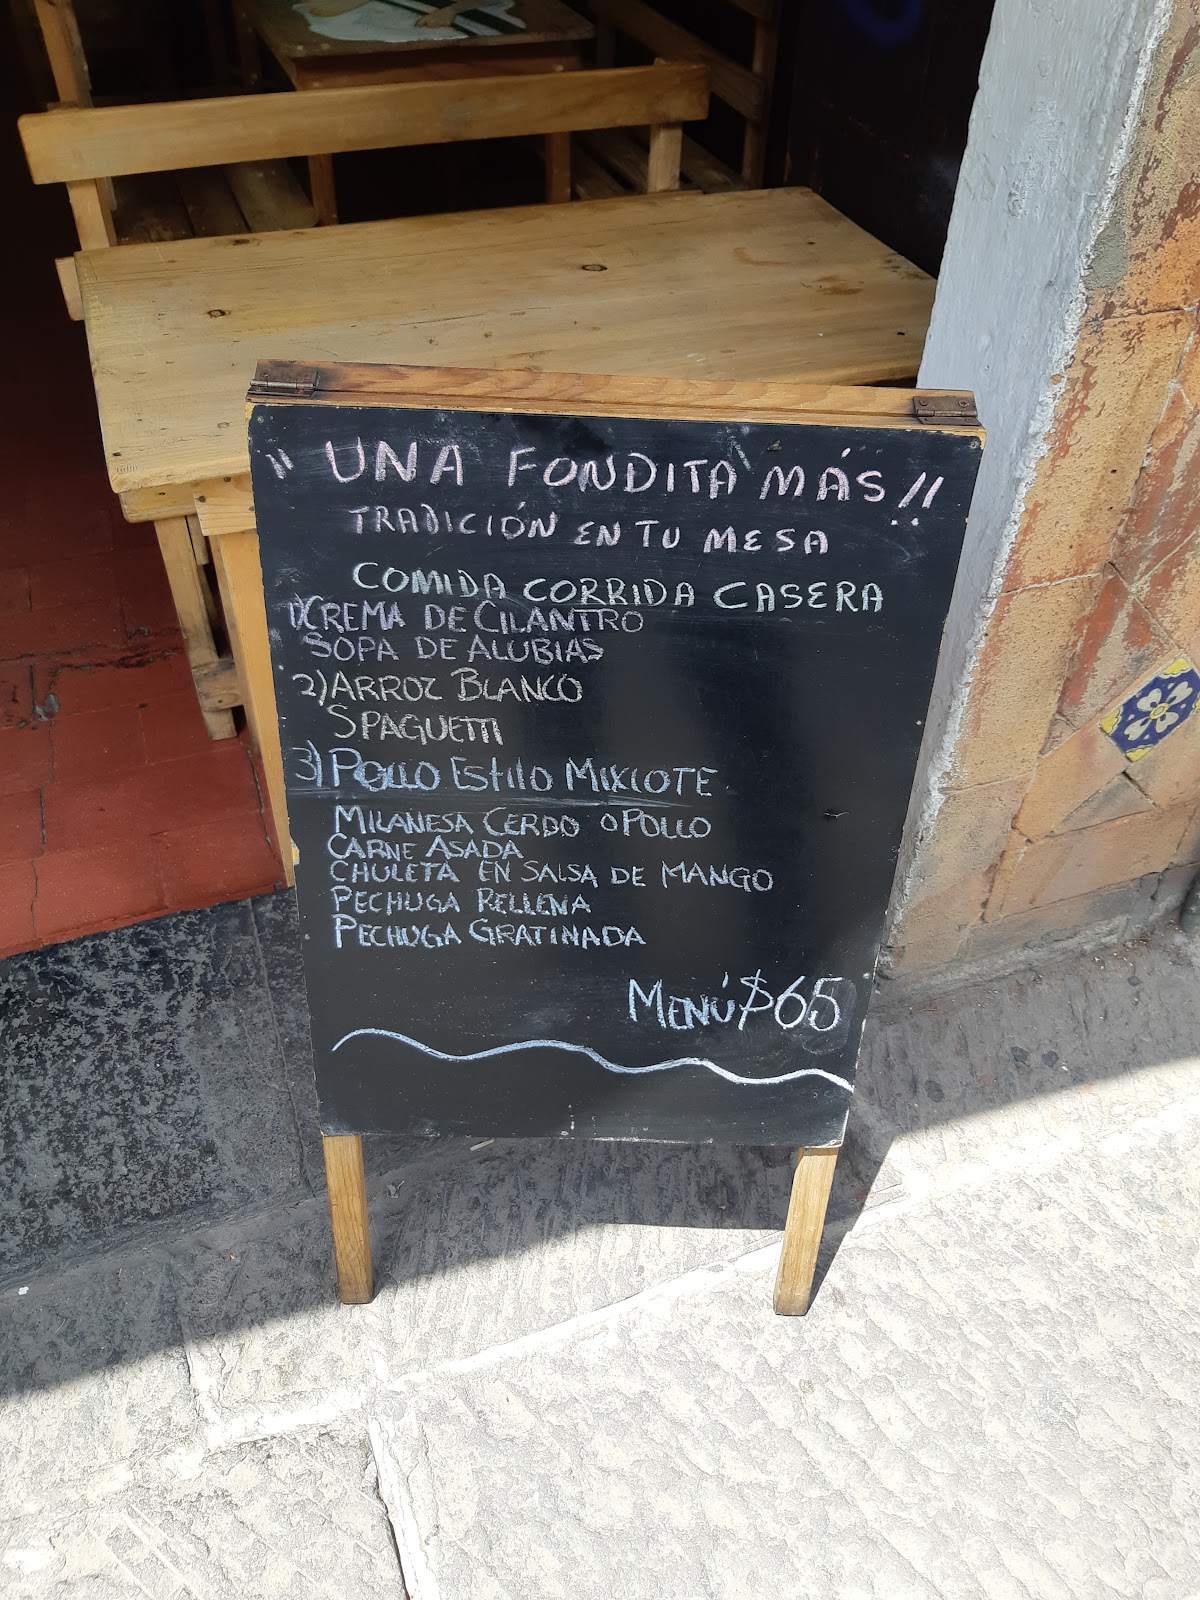 " UNA FONDITA MÁS!!
TRADICIÓN EN TU MESA
COMIDA CORRIDA CASERA
1) CREMA DE CILANTRO
SOPA DE ALUBIAS
2) ARROZ BLANCO
SPAGUETTI
3) POLLO ESTILO MIXIOTE
MILANESA CERDO O POLLO
CARNE ASADA
CHULETA EN SALSA DE MANGO
PECHUGA RELLENA
PECHUGA GRATINADA
MENÚ $65